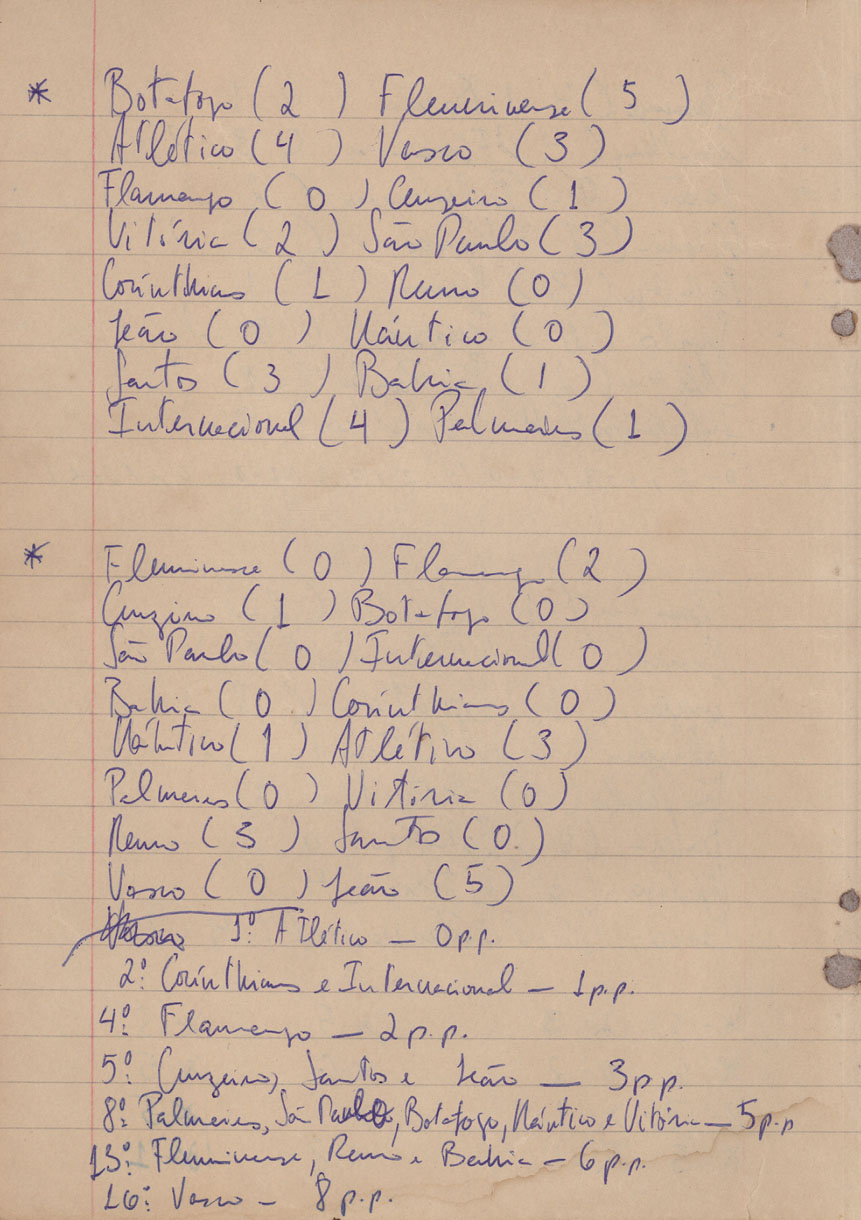 * Botafogo ( 2 ) Fluminense ( 5 )
Atlético ( 4 ) Vasco ( 3 )
Flamengo ( 0 ) Cruzeiro ( 1 )
Vitória ( 2 ) São Paulo ( 3 )
Corinthians ( 1 ) Remo ( 0 )
Leão ( 0 ) Náutico ( 0 )
Santos ( 3 ) Bahia ( 1 )
Internacional ( 4 ) Palmeiras ( 1 )
* Fluminense ( 0 ) Flamengo ( 2 )
Cruzeiro ( 1 ) Botafogo ( 0 )
São Paulo ( 0 ) Internacional ( 0 )
Bahia ( 0 ) Corinthians ( 0 )
Náutico ( 1 ) Atlético ( 3 )
Palmeiras ( 0 ) Vitória ( 0 )
Remo ( 3 ) Santos ( 0 )
Vasco ( 0 ) Leão ( 5 )
1º Atlético — 0 p.p.
2º Corinthians e Internacional — 1 p.p.
4º Flamengo — 2 p.p.
5º Cruzeiro, Santos e Leão — 3 p p.
8º Palmeiras, São Paulo, Botafogo, Náutico e Vitória — 5 p.p
13º Fluminense, Remo e Bahia — 6 p.p.
16º Vasco — 8 p.p.